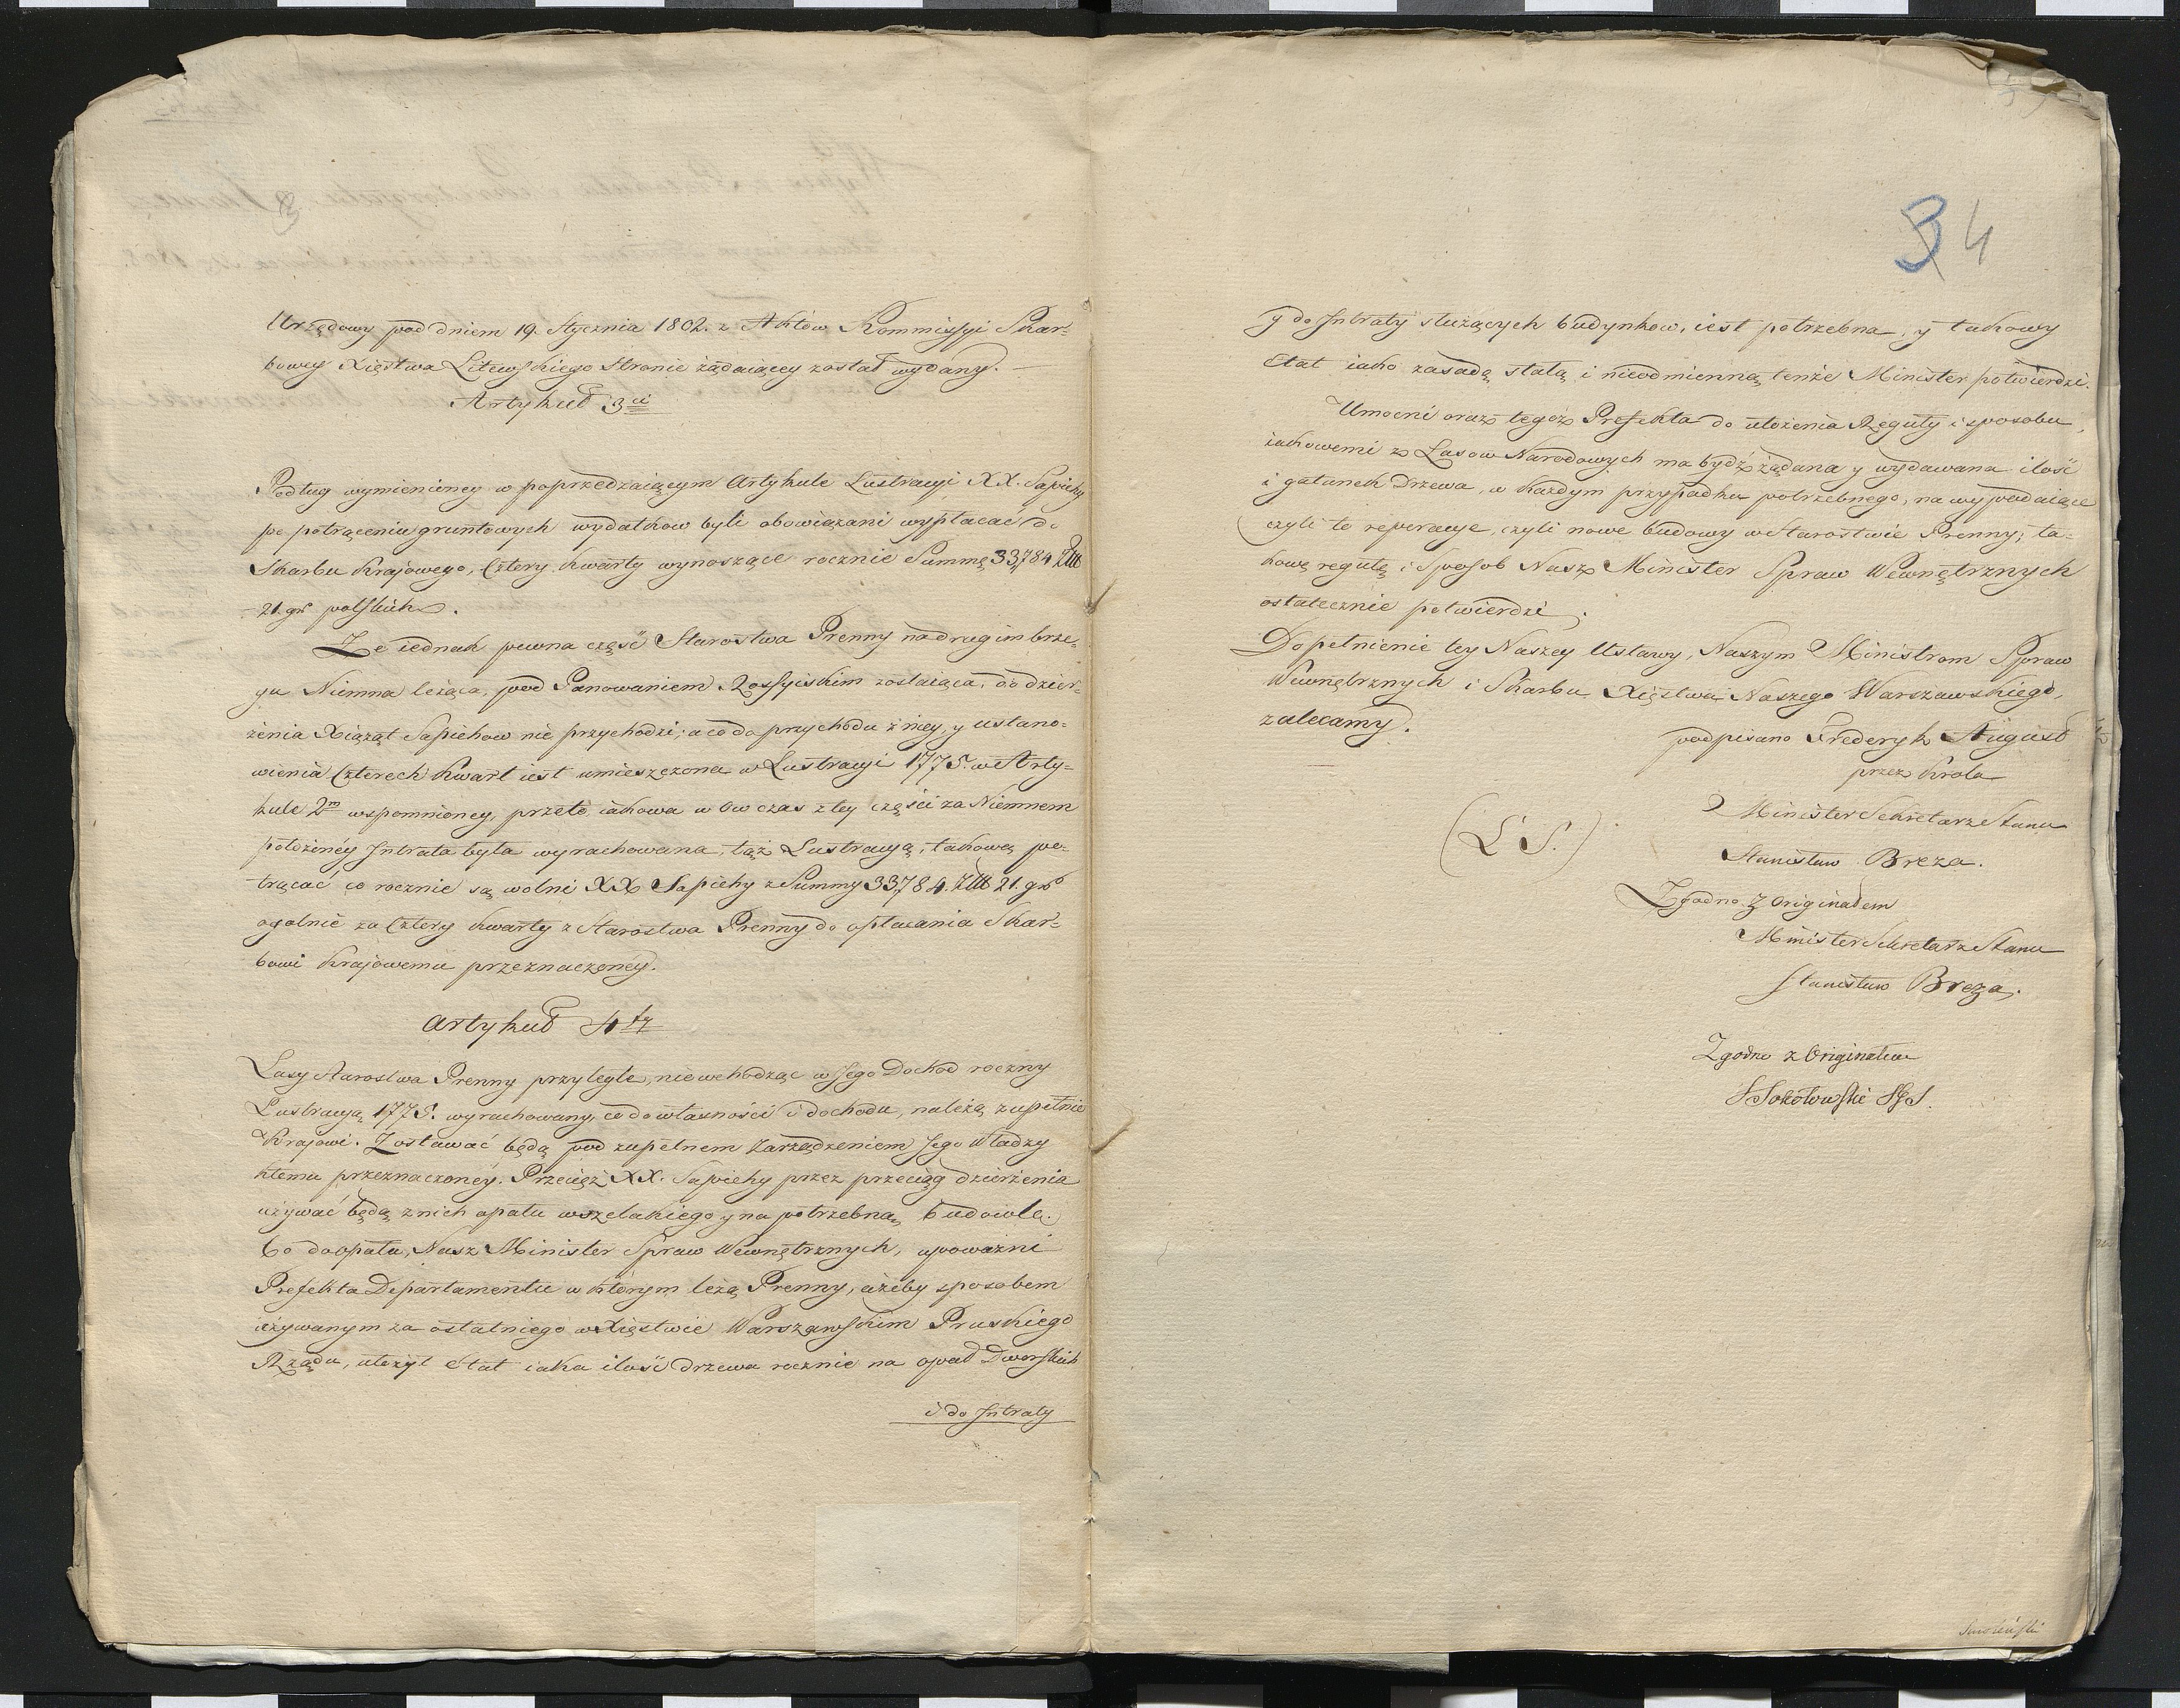 Urzędowy pod dniem 19. Stycznia 1802. z Aktów Kommissyi Skar-
bowey Xięstwa Litewskiego Stronie żądaiącey został wydany. —
Artykuł 3ci
Podług wymienioney w poprzedzaiącym Artykule Lustracyi XX. Sapiehy
po potrąceniu gruntowych wydatkow byli obowiązani wypłacać do
Skarbu Krajowego, Cztery Kwarty wynoszące rocznie Summę 33784 Złłł
21. gr. polskich.
Że iednak pewna część Starostwa Prenny na drugim brze-
gu Niemna leżąca, pod Panowaniem Rossyiskim zostaiąca, do dzier-
żenia Xiążąt Sapiehow nie przychodzi; a co do przychodu z niey, y ustano-
wienia Czterech Kwart iest umieszczona w Lustracyi 1775. w Arty-
kule 2m wspomnioney, przeto iakowa w ów czas z tey części za Niemnem
położonéy Intrata była wyrachowana, tąż Lustracyą, takową po-
trącać co rocznie są wolni XX Sapiehy z Summy 33784. Złłł 21. gr.
ogolnie za Cztery Kwarty z Starostwa Prenny do opłacania Skar-
bowi Krajowemu przeznaczonéy.
Artykuł 4ty
Lasy Starostwa Prenny przyległe, nie wchodząc w Jego Dochod roczny
Lustracyą 1775. wyrachowany, co do własności i dochodu, należą zupełnie
Krajowi. Zostawać będą pod zupełnem Zarządzeniem Jego Władzy
ktemu przeznaczonéy. Przecież XX. Sapiehy przez przeciąg dzierżenia
używać będą z nich opału wszelakiego y na potrzebną budowlę.
Co do opału, Nasz Minister Spraw Wewnętrznych, upoważni
Prefekta Departamentu w którym leżą Prenny, ażeby sposobem
używanym za ostatniego w Xięstwie Warszawskim Pruskiego
Rządu, ułożył Etat iaka ilość drzewa rocznie na opał Dworskich
i do Intraty
34
y do Intraty służących budynkow, iest potrzebna, y takowy
Etat iako zasadę stałą i nieodmienną tenże Minister potwierdzi.
Umocni oraz tegoż Prefekta do ułożenia Reguły i sposobu,
iakowemi z Lasow Narodowych ma bydź żądana y wydawana ilość
i gatunek Drzewa, w każdym przypadku potrzebnego, na wypadaiące
czyli to reperacye, czyli nowe budowy w Starostwie Prenny; ta-
kową regułę i Sposob Nasz Minister Spraw Wewnętrznych
ostatecznie potwierdzi.
Dopełnienie tey Naszey Ustawy, Naszym Ministrom Spraw
Wewnętrznych i Skarbu Xięstwa Naszego Warszawskiego,
zalecamy.
podpisano Frederyk August
przez Krola
Minister Sekretarz Stanu
(L S.)
Stanisław Breza.
Zgodno z Originałem
Minister Sekretarz Stanu
Stanisław Breza.
Zgodno z Originałem
Sokołowski